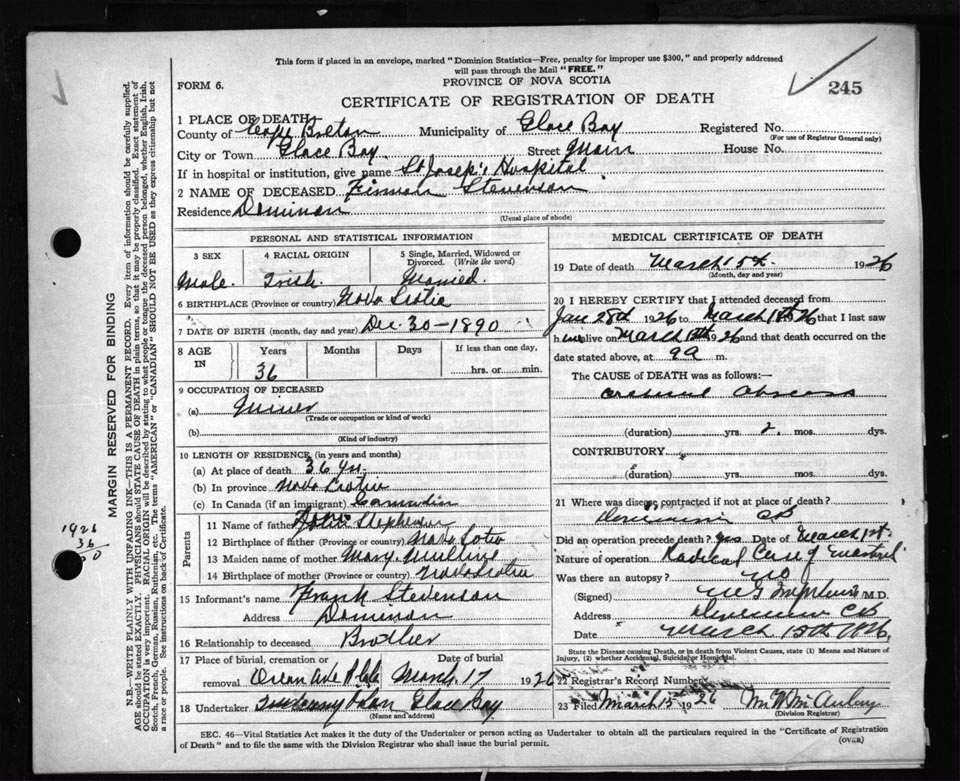 This form if placed in an envelope, marked "Dominion Statistics—Free, penalty for improper use $300," and properly addressed
will pass through the Mail "FREE."
FORM 6.
PROVINCE OF NOVA SCOTIA
245
CERTIFICATE OF REGISTRATION OF DEATH
1 PLACE OF DEATH
County of Cape Breton Municipality of Glace Bay Registered No.
(For use of Registrar General only)
City or Town Glace Bay Street Main House No.
If in hospital or institution, give name St Joseph's Hospital
2 NAME OF DECEASED Stevenson
Residence Dominion
(Usual place of abode)
PERSONAL AND STATISTICAL INFORMATION
3 SEX
4 RACIAL ORIGIN
5 Single, Married, Widowed or
Divorced. (Write the word)
Male Irish Married
6 BIRTHPLACE (Province or country) Nova Scotia
7 DATE OF BIRTH (month, day and year) Dec. 30-1890
8 AGE
IN
Years Months Days If less than one day,
36
hrs. or min.
9 OCCUPATION OF DECEASED
(a) Miner
(Trade or occupation or kind of work)
(b)
(Kind of industry)
10 LENGTH OF RESIDENCE (in years and months)
(a) At place of death 36 yrs.
(b) In province Nova Scotia
(c) In Canada (if an immigrant) Canadian
Parents
11 Name of father
12 Birthplace of father (Province or country) Nova Scotia
13 Maiden name of mother Mary
14 Birthplace of mother (Province or country) Nova Scotia
15 Informant's name Frank Stevenson
Address Dominion
16 Relationship to deceased Brother
17 Place of burial, cremation or
removal
Date of burial
March 17 1926
18 Undertaker Glace Bay
(Name and address)
MEDICAL CERTIFICATE OF DEATH
19 Date of death March 15th 1926
(Month, day and year)
20 I HEREBY CERTIFY that I attended deceased from
Jan 28th 1926 to March 15th 1926 that I last saw
h im alive on March 15th 1926 and that death occurred on the
date stated above, at 9 a m.
The CAUSE of DEATH was as follows:—
Cerebral Abscess
(duration) yrs. 2 mos. dys.
CONTRIBUTORY
(duration) yrs. mos. dys.
21 Where was disease contracted if not at place of death?
Dominion CB
Did an operation precede death? Yes Date of March 1st
Nature of operation Radical Cure of
Was there an autopsy? no
(Signed) M.D.
Address Dominion CB
Date March 15th 1926
State the Disease causing Death, or in death from Violent Causes, state (1) Means and Nature of
Injury, (2) whether Accidental, Suicidal or Homicidal.
22 Registrar's Record Number
23 Filed March 15 1926
(Division Registrar)
SEC. 46—Vital Statistics Act makes it the duty of the Undertaker or person acting as Undertaker to obtain all the particulars required in the "Certificate of Registration
of Death" and to file the same with the Division Registrar who shall issue the burial permit.
(OVER)
MARGIN RESERVED FOR BINDING
N.B.—WRITE PLAINLY WITH UNFADING INK—THIS IS A PERMANENT RECORD. Every item of information should be carefully supplied.
AGE should be stated EXACTLY. PHYSICIANS should STATE CAUSE OF DEATH in plain terms, so that it may be properly classified. Exact statement of
OCCUPATION is very important. RACIAL ORIGIN will be described by stating to what people or tongue the deceased person belonged, whether English, Irish,
Scotch, French, German, Russian, Ruthenian, etc. The terms "AMERICAN" or "CANADIAN" SHOULD NOT BE USED as they express citizenship but not
a race or people. See instructions on back of Certificate.
1926
36